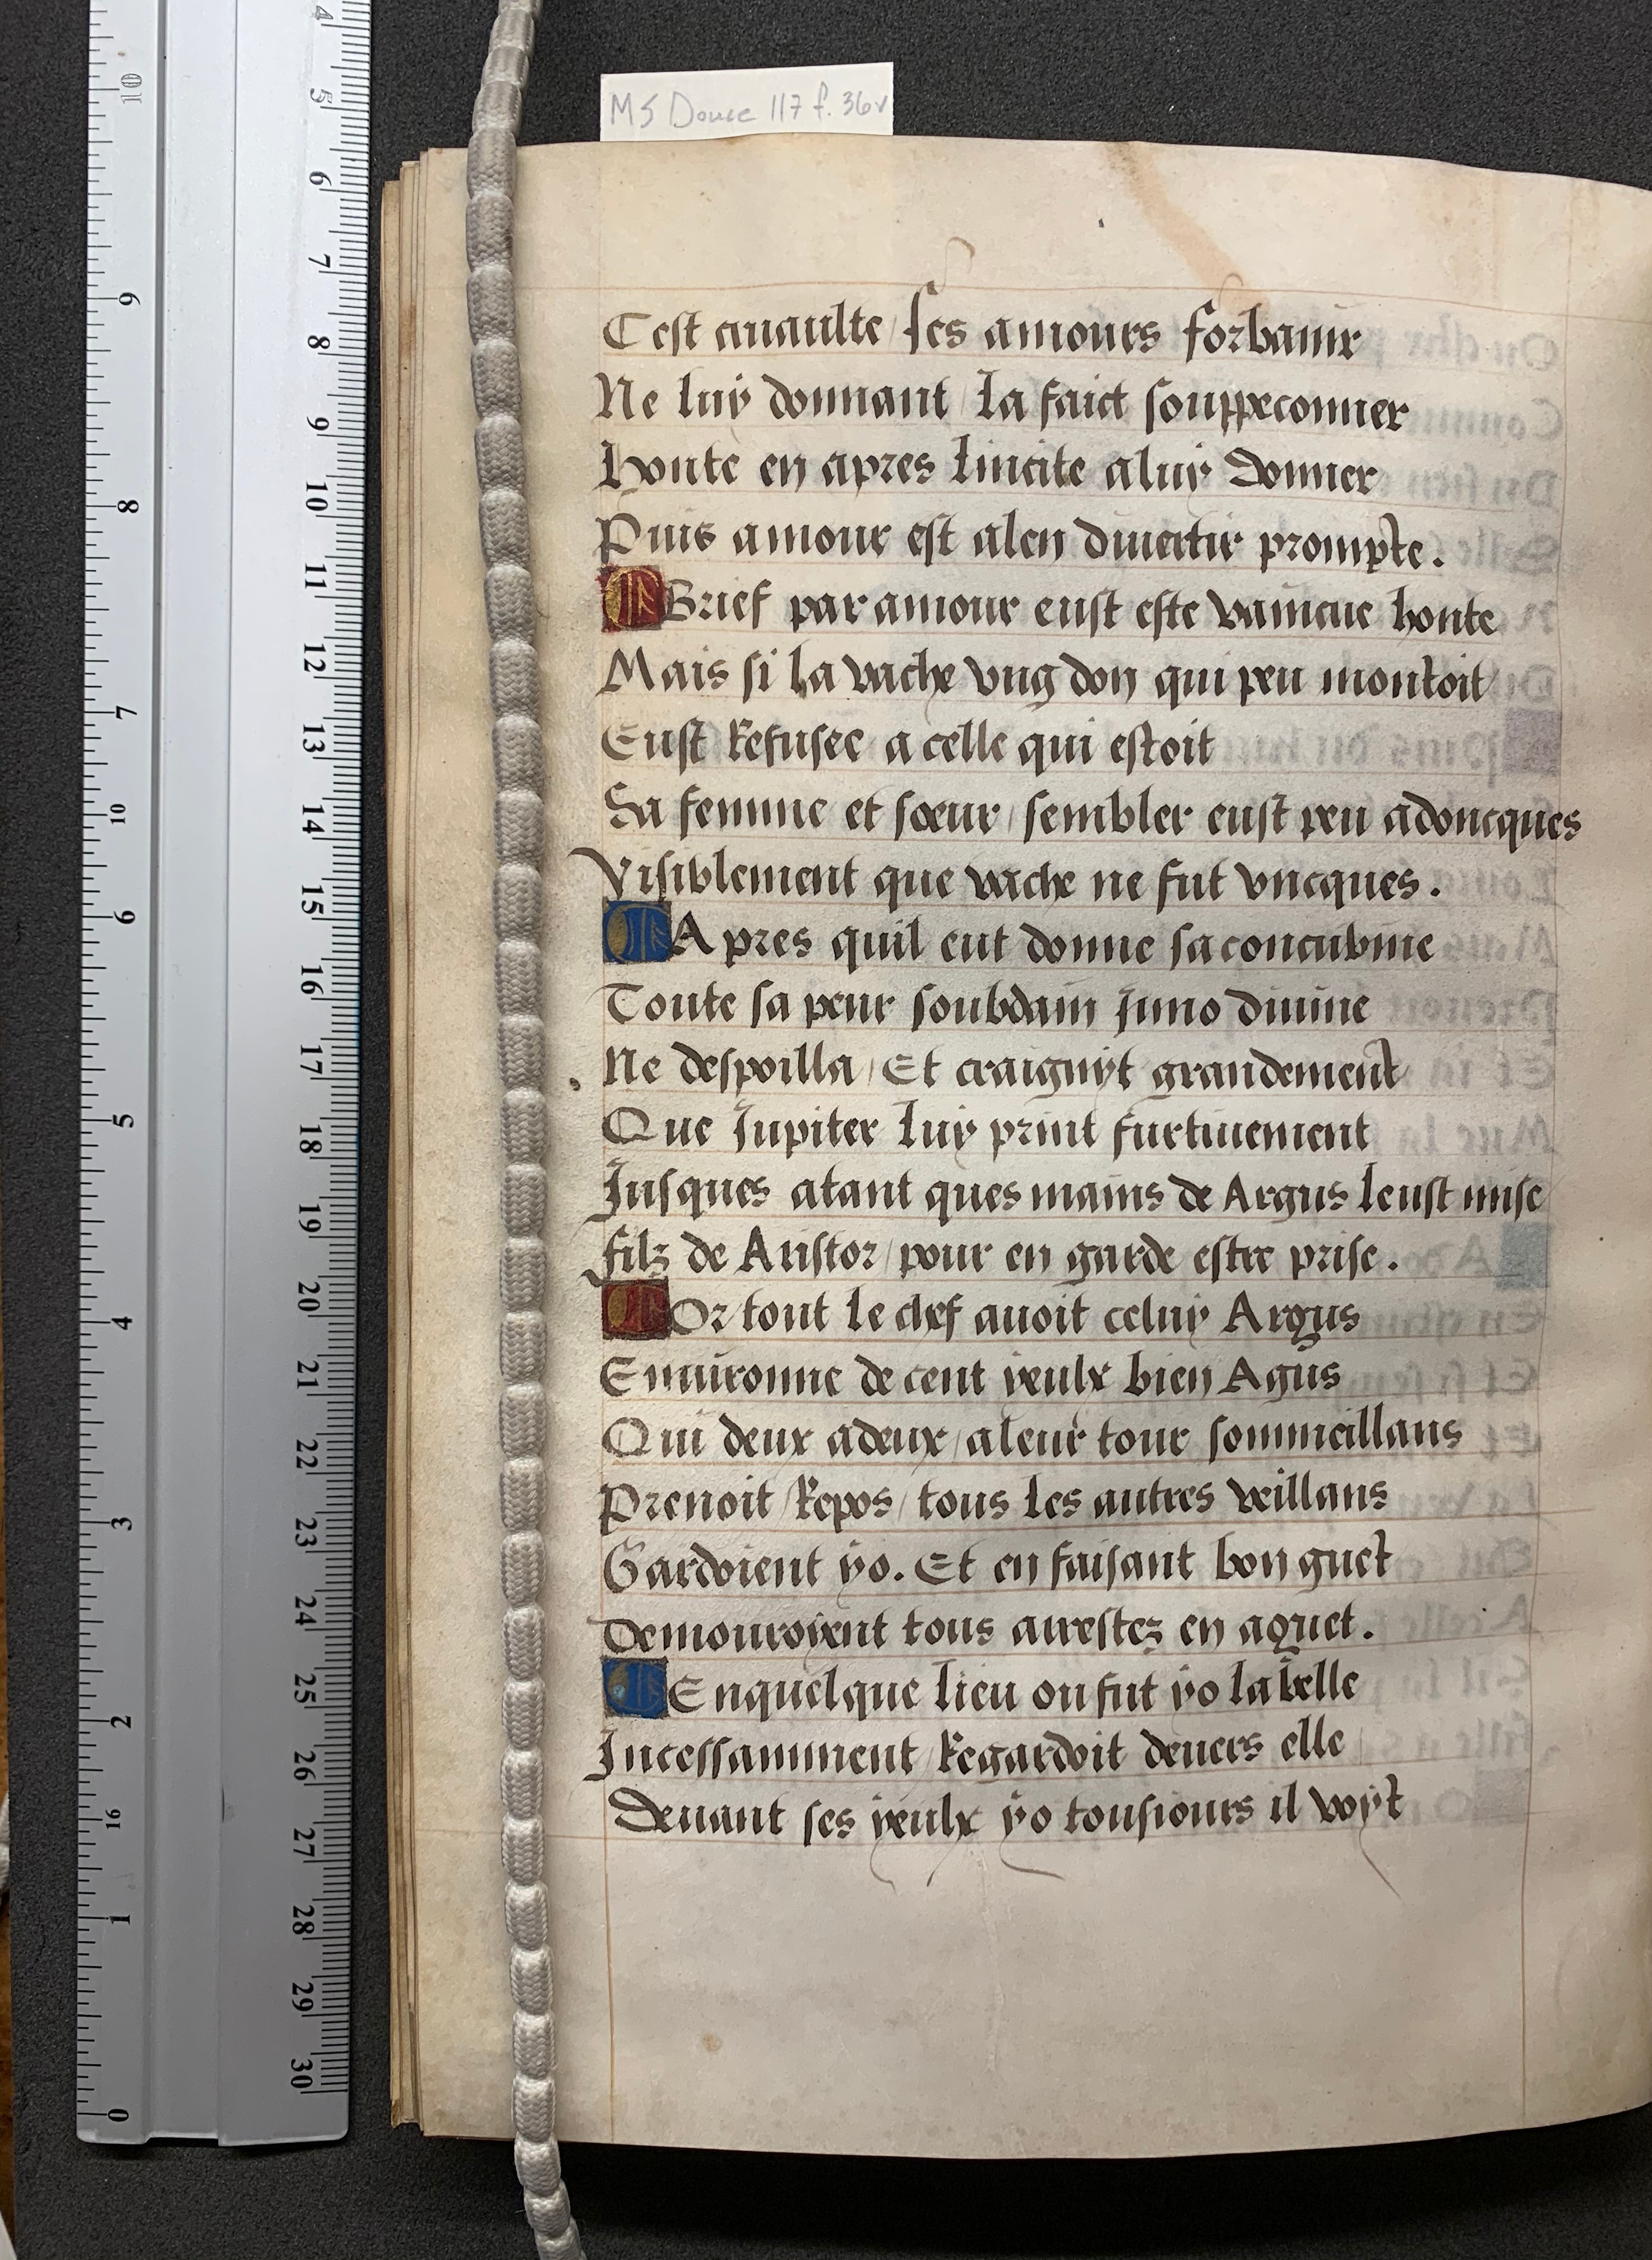 MS Douce 117 f. 36v
Cest cruaulte / ses amours forbanir
Ne luy donnant / la faict souppeconner
Honte en apres lincite aluy donner
Puis amour est alen divertir prompte.
Brief par amour eust este vaincue honte
Mais si la vache ung don qui peu montoit
Eust Refusee a celle qui estoit
Sa femme et sœur / sembler eust peu adoncques
Visiblement que vache ne fut uncques.
Apres quil eut donne sa concubine
Toute sa peur soubdain Juno divine
Ne despoilla / Et craignyt grandement
Que Jupiter luy print furtivement
Jusques atant ques mains de Argus leust mise
filz de Aristor / pour en garde estre prise.
Or tout le chef avoit celuy Argus
Environne de cent yeulx bien Agus
Qui deux adeux / aleur tour sommeillans
Prenoit Repos / tous les autres veillans
Gardoient yo. Et en faisant bon guet
Demouroient tous arrestez en aguet.
Enquelque lieu ou fut yo la belle
Incessamment Regardoit devers elle
Devant ses yeulx yo tousiours il voyt